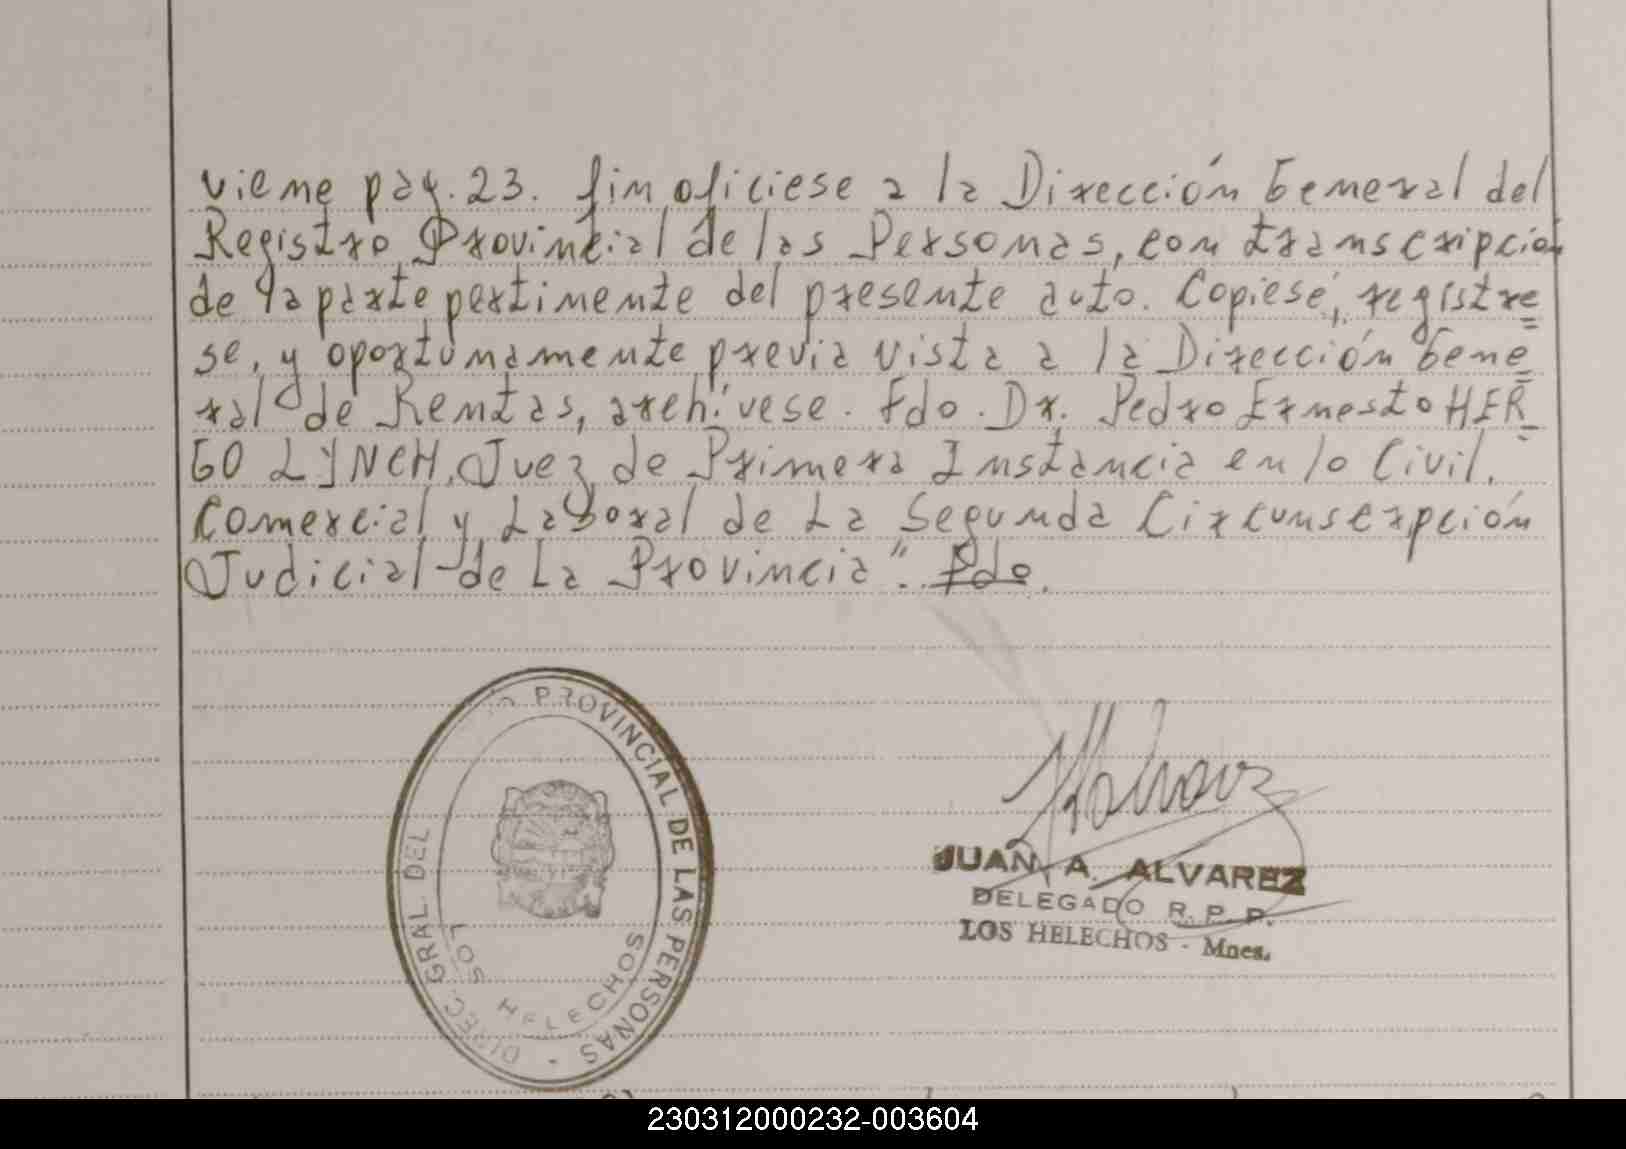 viene pág. 23. fin, ofíciese a la Dirección General del
Registro Provincial de las Personas, con transcripción
de la parte pertinente del presente auto. Copiese, registre
se, y oportunamente previa vista a la Dirección Gene
ral de Rentas, archívese. Fdo. Dr. Pedro Ernesto HER
GO LYNCH, Juez de Primera Instancia en lo Civil,
Comercial y Laboral de La Segunda Circunscrpción
Judicial de La Provincia". Fdo.
DIREC. GRAL. DEL PROVINCIAL DE LAS PERSONAS -
LOS HELECHOS
JUAN A. ALVAREZ
DELEGADO R. P. P.
LOS HELECHOS - Mnes.
230312000232-003604